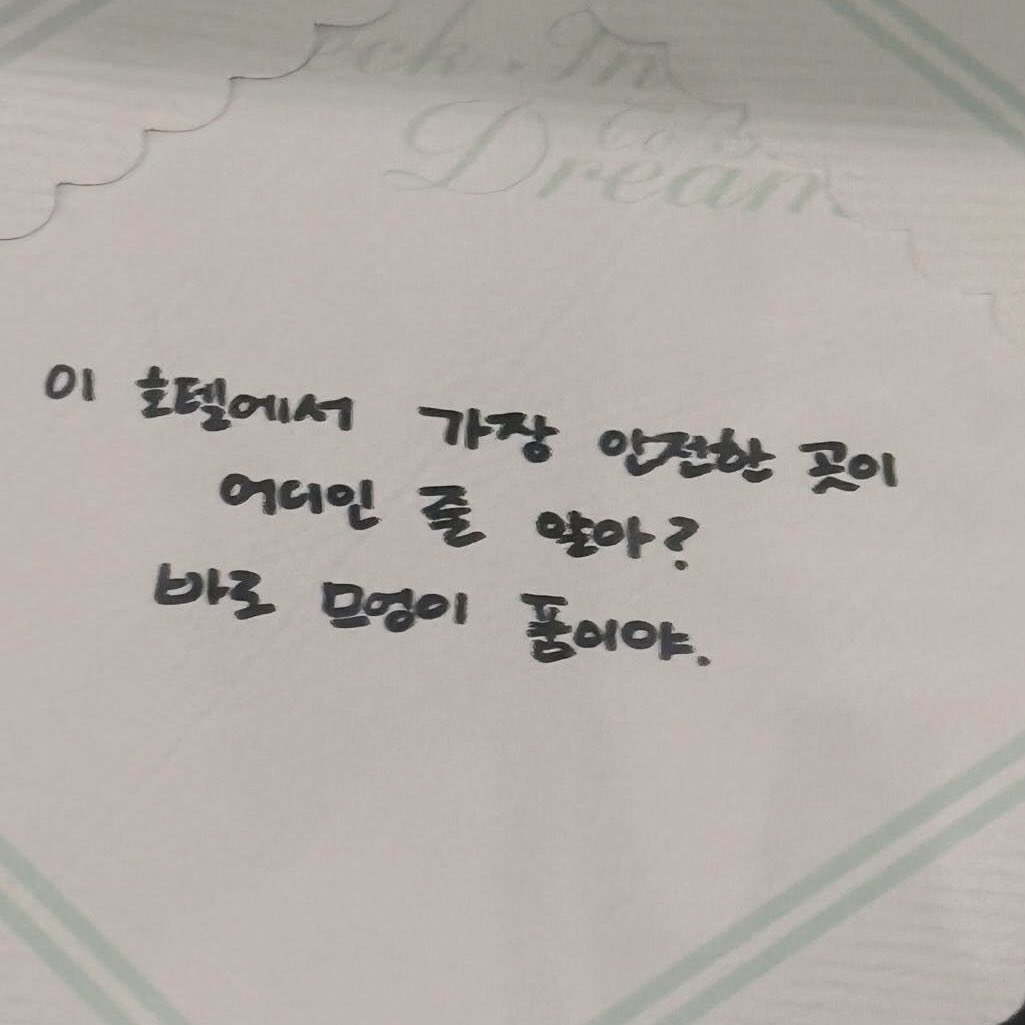 In
Dream
이 호텔에서 가장 안전한 곳이
어디인 줄 알아?
바로 므엉이 품이야.